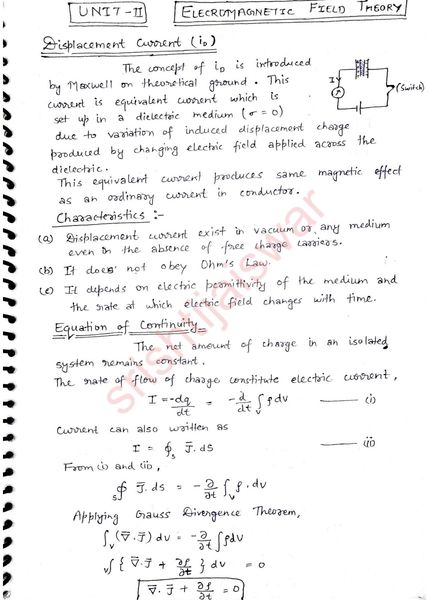 UNIT-II
ELECROMAGNETIC FIELD THEORY
Displacement Current (iD)
The concept of iD is introduced
by Maxwell on theoretical ground. This
current is equivalent current which is
set up in a dielectric medium (σ = 0)
due to variation of induced displacement charge
produced by changing electric field applied across the
dielectric.
This equivalent current produces same magnetic effect
as an ordinary current in conductor.
I
(Switch)
Characteristics :-
(a) Displacement current exist in vacuum or any medium
even in the absence of free charge carriers.
(b) It does not obey Ohm's Law.
(c) It depends on electric permittivity of the medium and
the rate at which electric field changes with time.
Equation of Continuity
The net amount of charge in an isolated
system remains constant.
The rate of flow of charge constitute electric current,
I = -dq/dt = -d/dt ∫v ρdv —— (i)
Current can also written as
I = ∮s J̄.ds —— (ii)
From (i) and (ii),
∮s J̄.ds = -∂/∂t ∫v ρ.dv
Applying Gauss Divergence Theorem,
∫v (∇̄.J̄) dv = -∂/∂t ∫ρdv
v∫ { ∇̄.J̄ + ∂ρ/∂t } dv = 0
∇̄.J̄ + ∂ρ/∂t = 0
srishtijaiswar